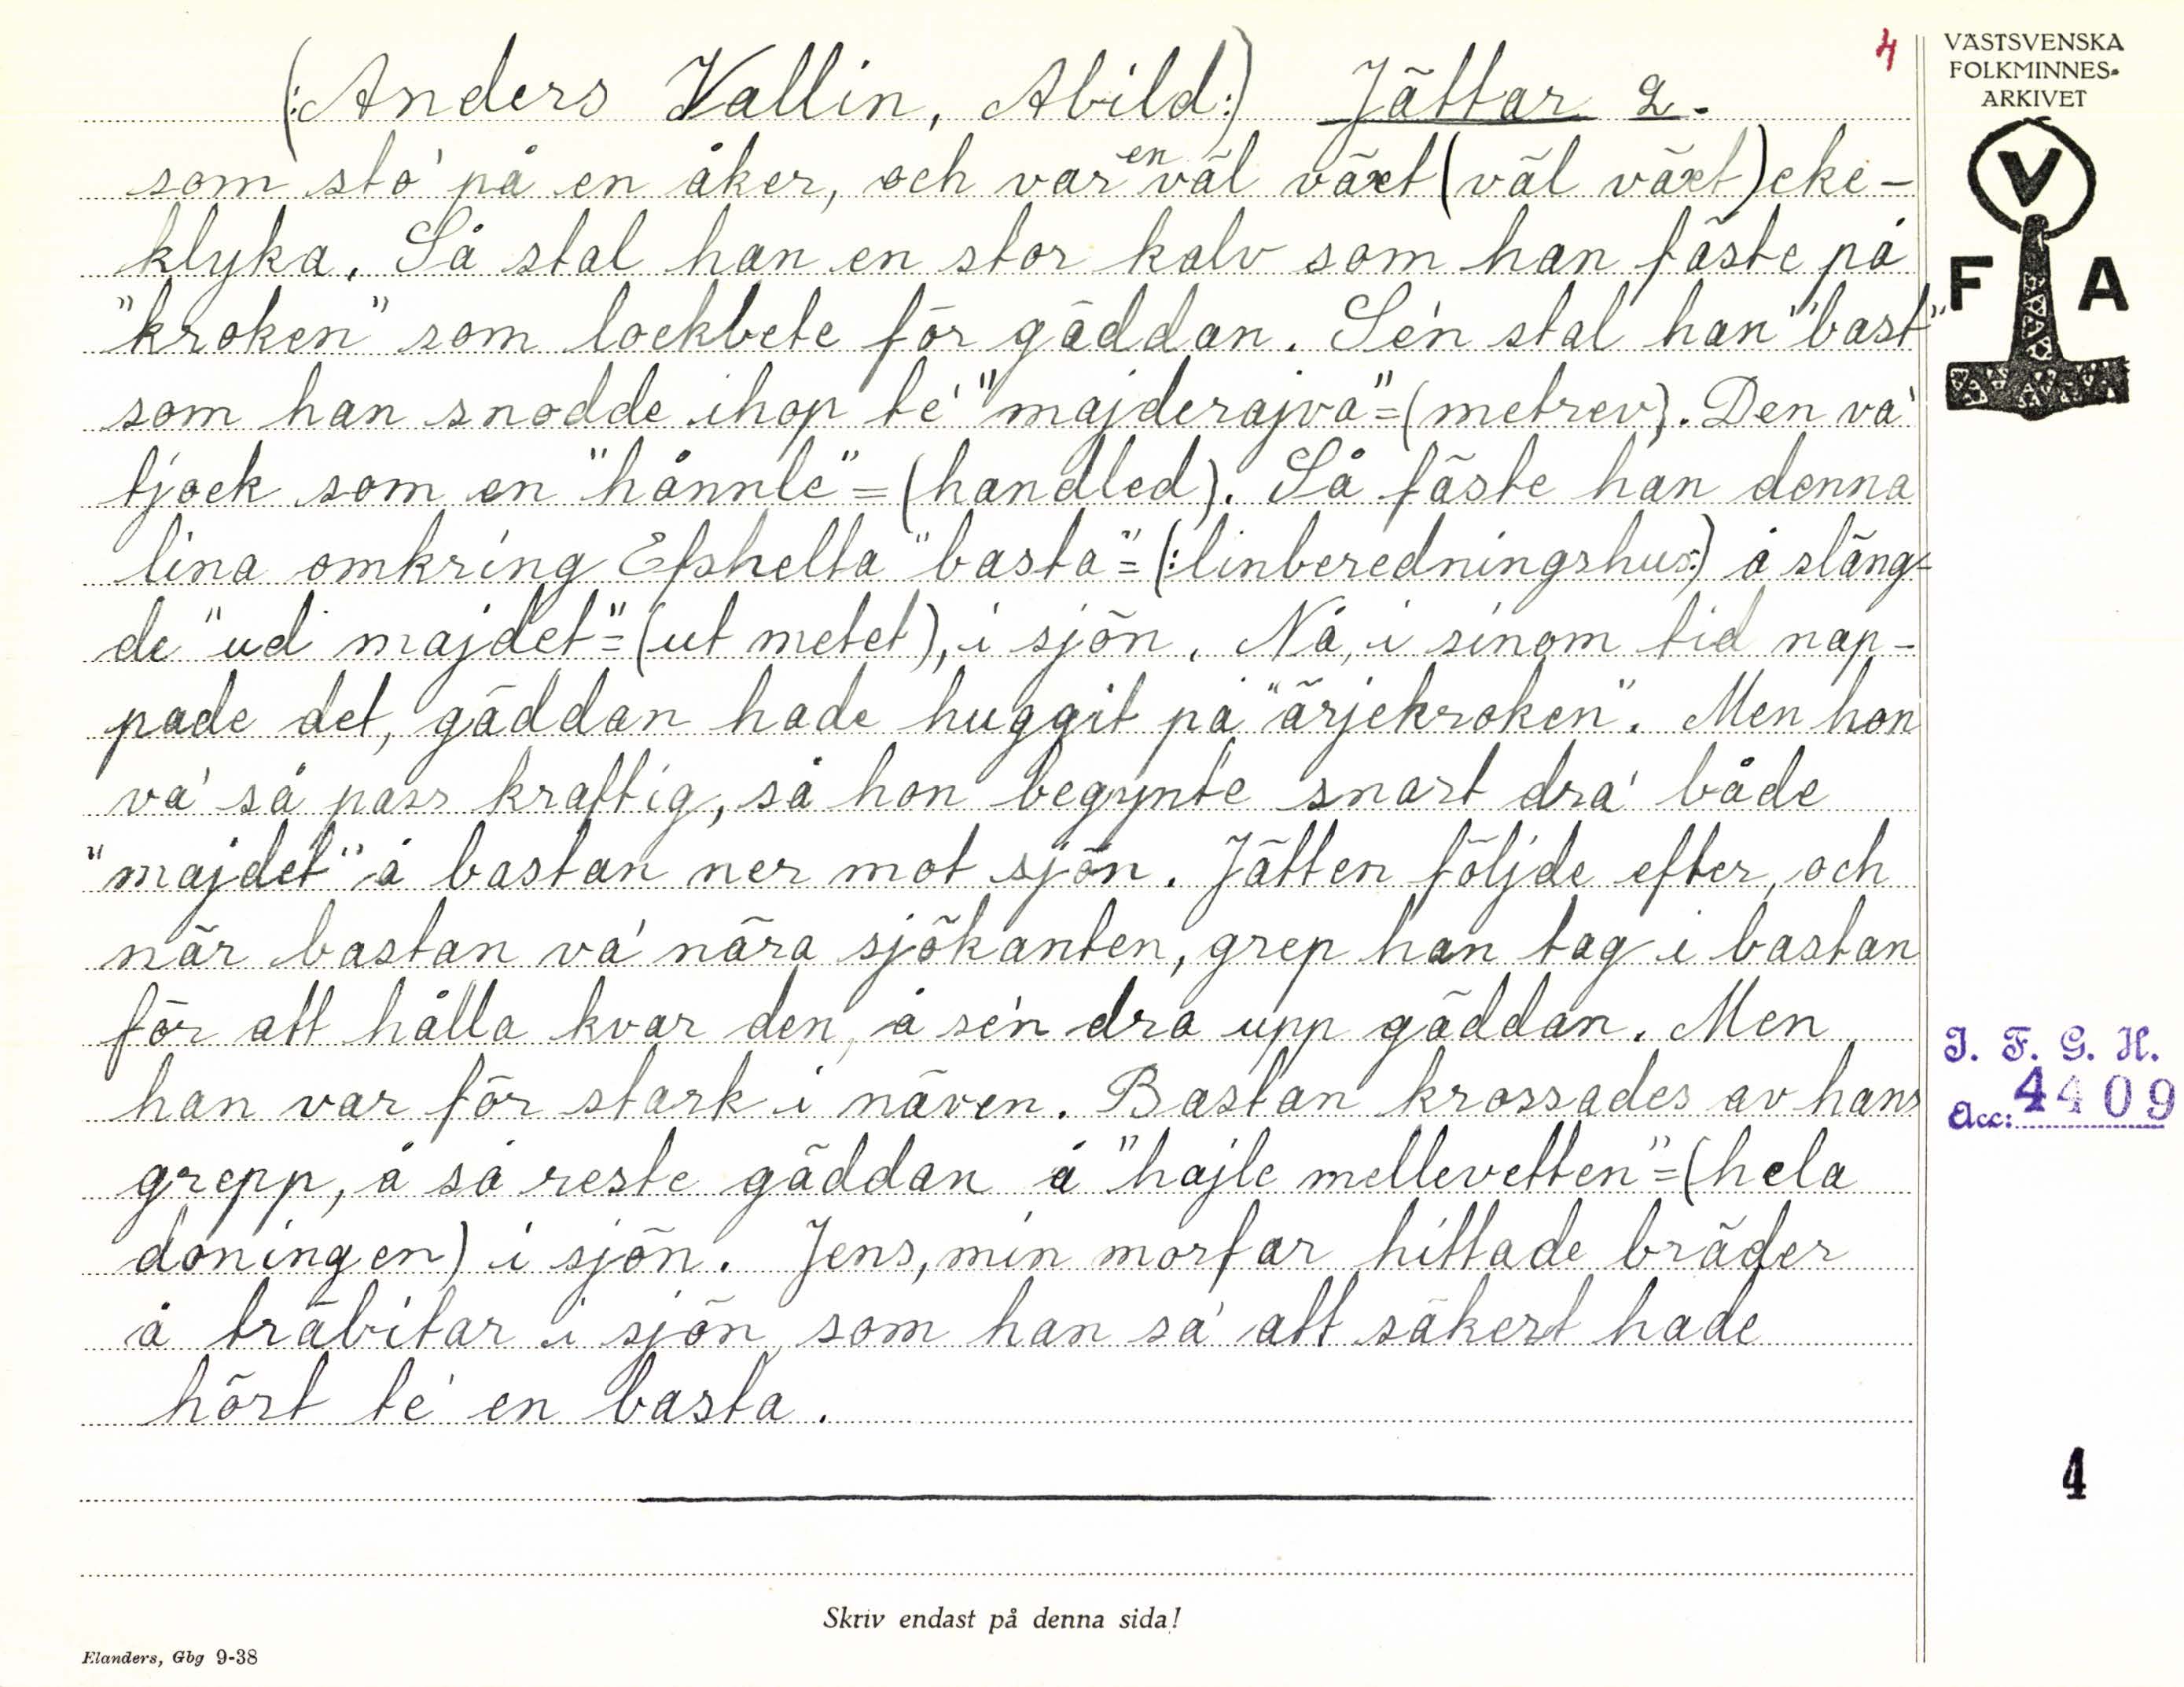 4
VÄSTSVENSKA
FOLKMINNES-
ARKIVET
V
F A
(:Anders Vallin, Abild:) Jättar 2.
som sto' på en åker, och var en väl växt (väl växt) eke-
klyka. Så stal han en stor kalv som han fäste på
"kroken" som lockbete för gäddan. Se'n stal han "bast"
som han snodde ihop te' "majderajva" = (metrev). Den va'
tjock som en "hånnle" = (handled). Så fäste han denna
lina omkring Efshella "basta" = (:linberedningshus:) å släng-
de "ud majdet" = (ut metet), i sjön. Nå, i sinom tid nap-
pade det, gäddan hade huggit på "ärjekroken". Men hon
va' så pass kraftig, så hon begynte snart dra' både
"majdet" å bastan ner mot sjön. Jätten följde efter, och
när bastan va' nära sjökanten, grep han tag i bastan
för att hålla kvar den, å se'n dra upp gäddan. Men
han var för stark i näven. Bastan krossades av hans
grepp, å så reste gäddan å "hajle mellevetten" = (hela
doningen) i sjön. Jens, min morfar hittade bräder
å träbitar i sjön, som han sa' att säkert hade
hört te' en basta.
I. F. G. H.
Acc: 4409
4
Skriv endast på denna sida!
Elanders, Gbg 9-38